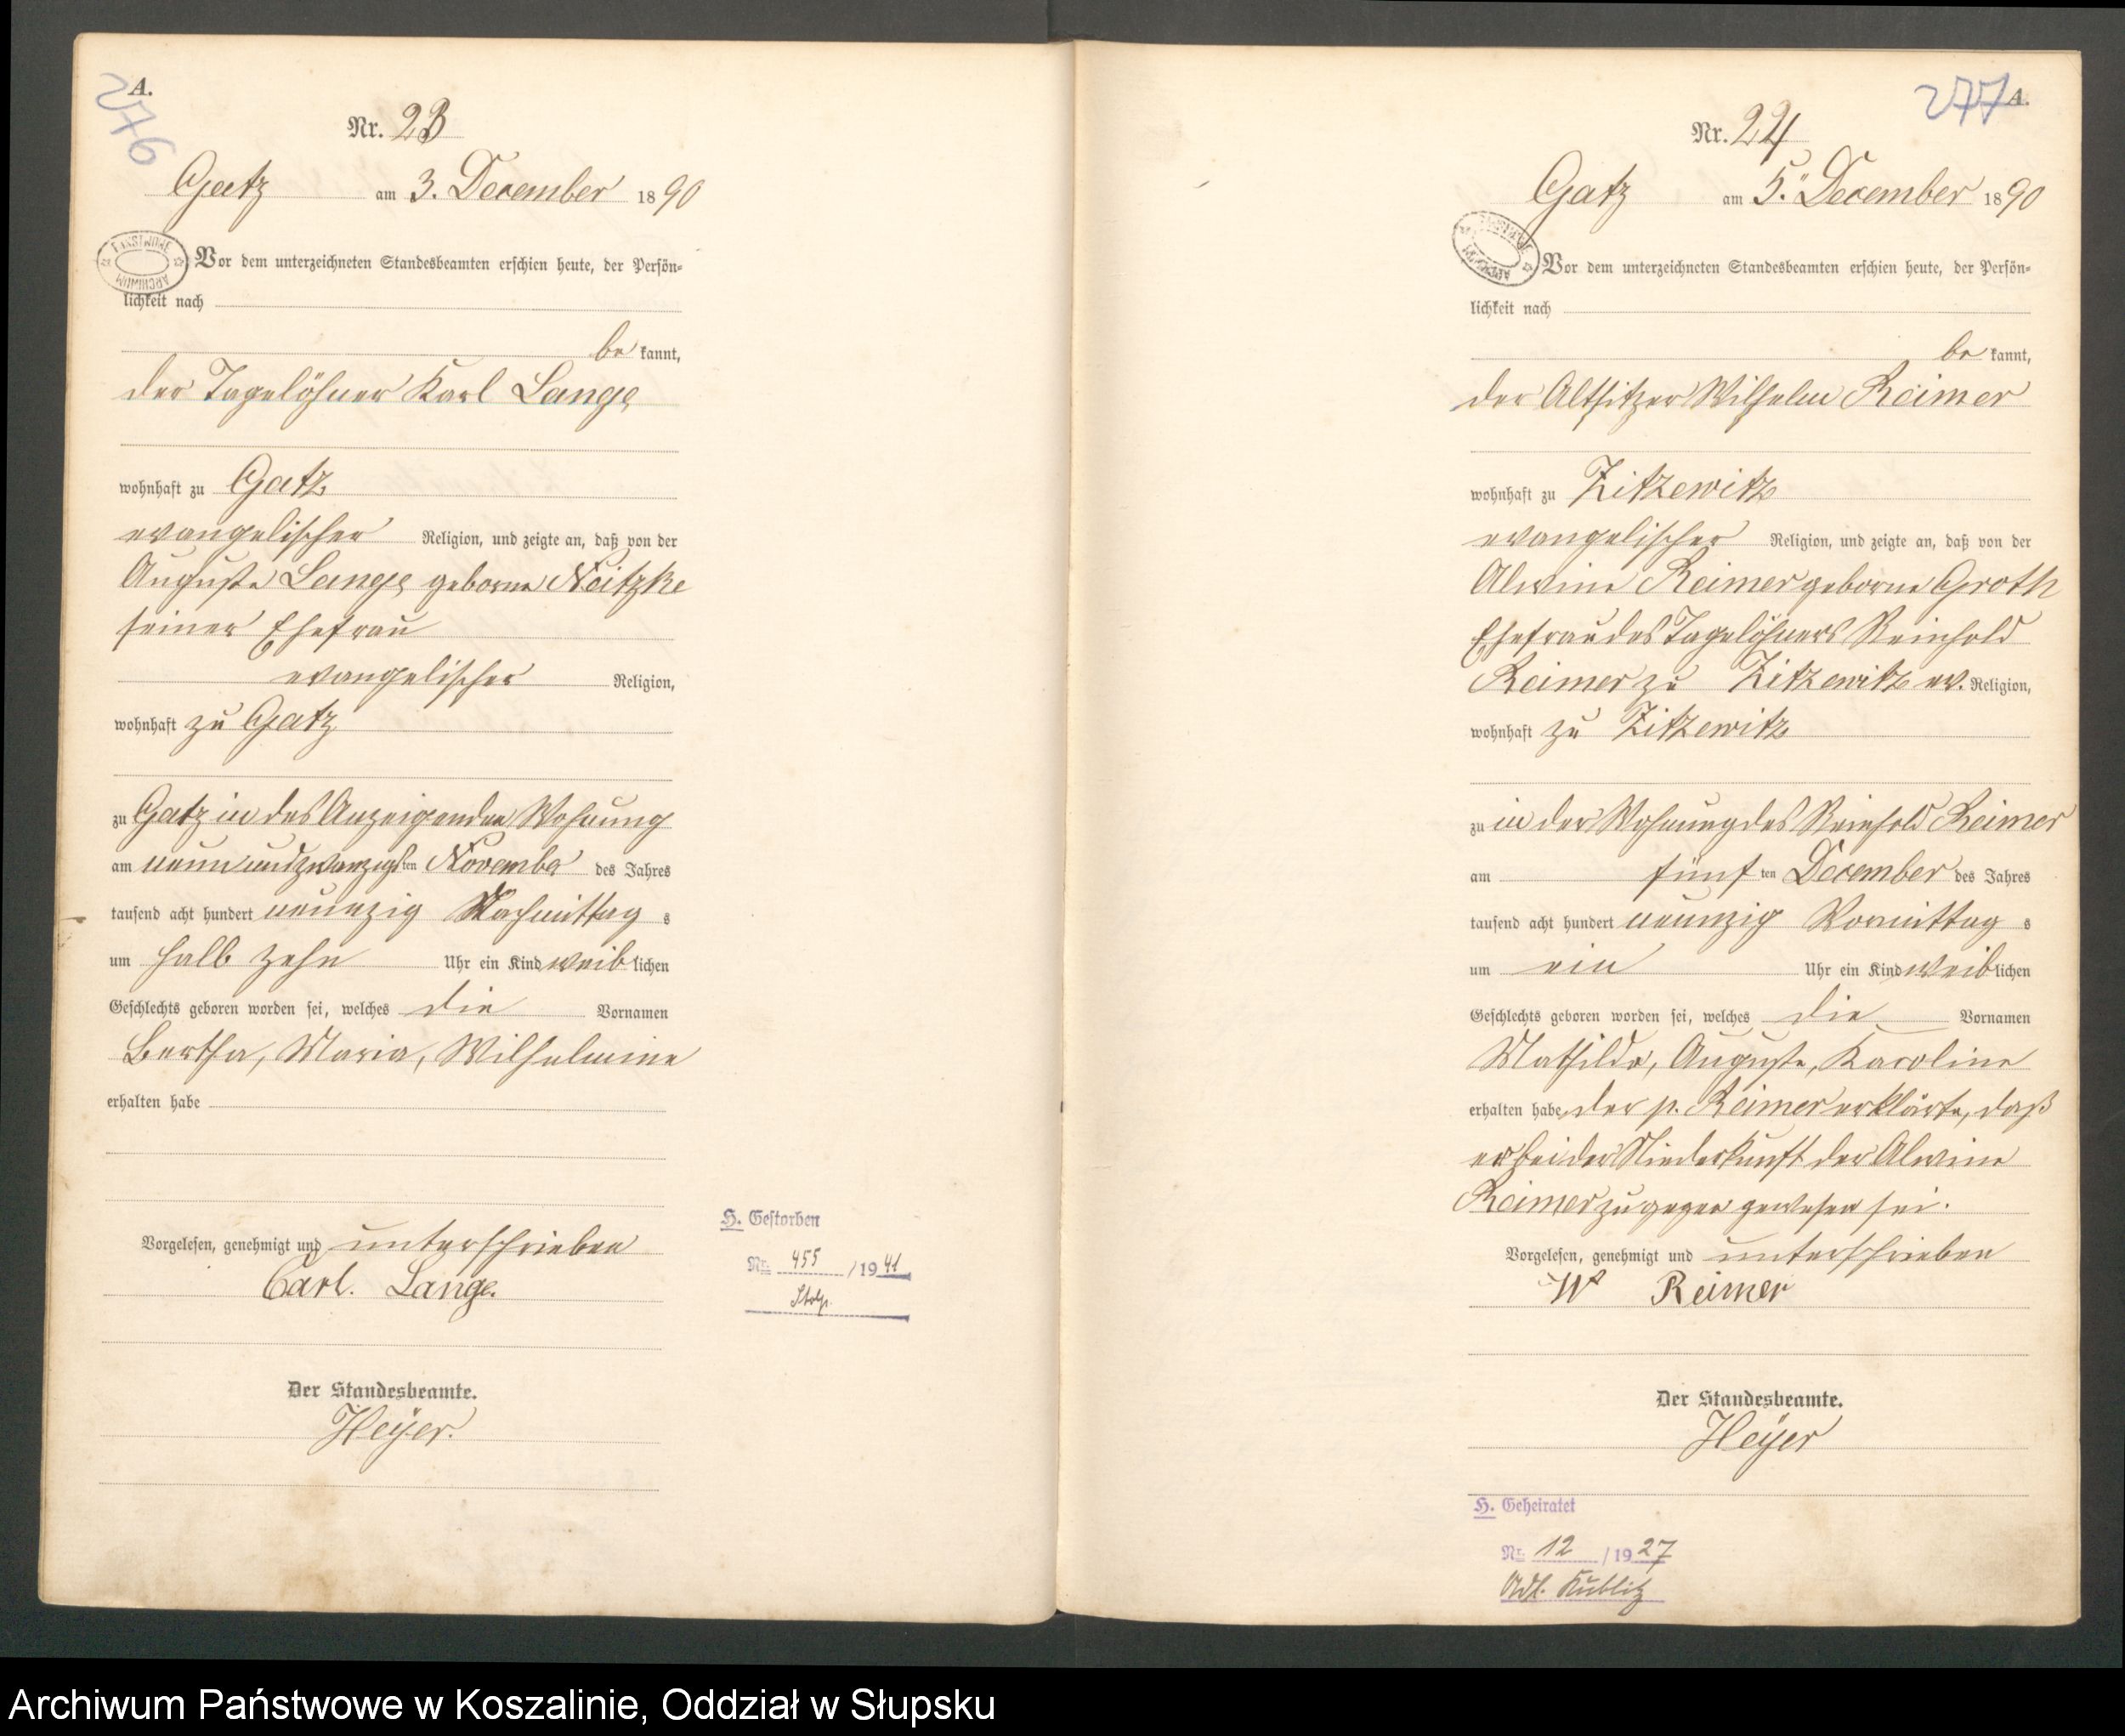 A.
276
Nr. 23
Gatz am 3. December 1890
PAŃSTWOWE
ARCHIWUM
Vor dem unterzeichneten Standesbeamten erschien heute, der Persön=
lichkeit nach
be kannt,
der Tagelöhner Karl Lange
wohnhaft zu Gatz
evangelischer Religion, und zeigte an, daß von der
Auguste Lange geborne Neitzke
seiner Ehefrau
evangelischer Religion,
wohnhaft zu Gatz
zu Gatz in des Anzeigenden Wohnung
am neunundzwanzigsten November des Jahres
tausend acht hundert neunzig Nachmittag s
um halb zehn Uhr ein Kind weiblichen
Geschlechts geboren worden sei, welches die Vornamen
Bertha, Maria, Wilhelmine
erhalten habe
Vorgelesen, genehmigt und unterschrieben
Carl. Lange.
Der Standesbeamte.
Heyer.
H. Gestorben
Nr. 455 / 1941
Stolp
277
A.
Nr. 24
Gatz am 5. December 1890
Vor dem unterzeichneten Standesbeamten erschien heute, der Persön=
lichkeit nach
be kannt,
der Altsitzer Wilhelm Reimer
wohnhaft zu Zitzewitz
evangelischer Religion, und zeigte an, daß von der
Alwine Reimer geborne Groth
Ehefrau des Tagelöhners Reinhold
Reimer zu Zitzewitz ev. Religion,
wohnhaft zu Zitzewitz
zu in der Wohnung des Reinhold Reimer
am fünften December des Jahres
tausend acht hundert neunzig Vormittag s
um ein Uhr ein Kind weiblichen
Geschlechts geboren worden sei, welches die Vornamen
Mathilde, Auguste, Karoline
erhalten habe, der p. Reimer erklärte, daß
er bei der Niederkunft der Alwine
Reimer zugegen gewesen sei.
Vorgelesen, genehmigt und unterschrieben
W Reimer
Der Standesbeamte.
Heyer
H. Geheiratet
Nr. 12 / 1927
Adl. Kublitz
Archiwum Państwowe w Koszalinie, Oddział w Słupsku